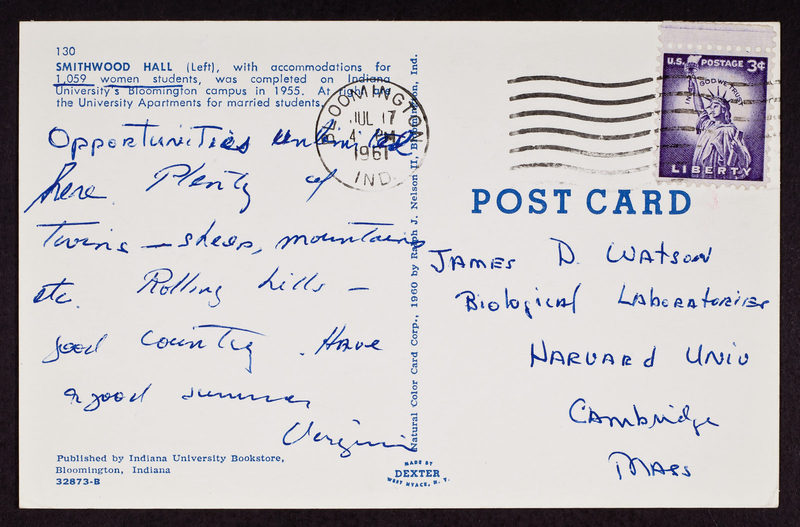 130
SMITHWOOD HALL (Left), with accommodations for
1,059 women students, was completed on Indiana
University's Bloomington campus in 1955. At right are
the University Apartments for married students.
Opportunities unlimited
here. Plenty of
Twins — sheep, mountains
etc. Rolling hills —
good country. Have
a good summer
Virginia
Published by Indiana University Bookstore,
Bloomington, Indiana
32873-B
Natural Color Card Corp., 1960 by Ralph J. Nelson II, Bloomington, Ind.
BLOOMINGTON
JUL 17
4 PM
1961
IND.
U.S. POSTAGE 3¢
IN GOD WE TRUST
LIBERTY
POST CARD
JAMES D. WATSON
Biological Laboratories
HARVARD UNIV
Cambridge
MASS
MADE BY
DEXTER
WEST NYACK, N. Y.